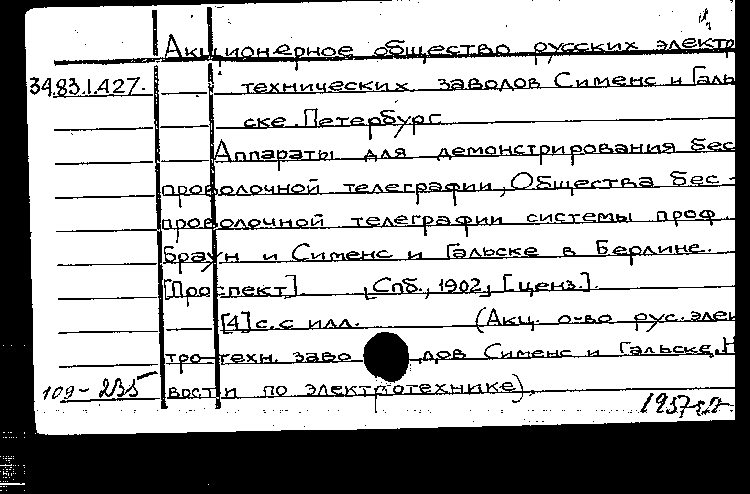 Акционерное общество русских электр
34.83.1.427. технических заводов Сименс и Галь
ске. Петербург
Аппараты для демонстрирования бес
проволочной телеграфии, Общества бес-
проволочной телеграфии системы проф.
Браун и Сименс и Гальске в Берлине.
[Проспект]. Спб., 1902, [ценз.].
[4] с. с илл. (Акц. о-во рус. элек
тро-техн. заво дов Сименс и Гальске. Н
109-235 вости по электротехнике).